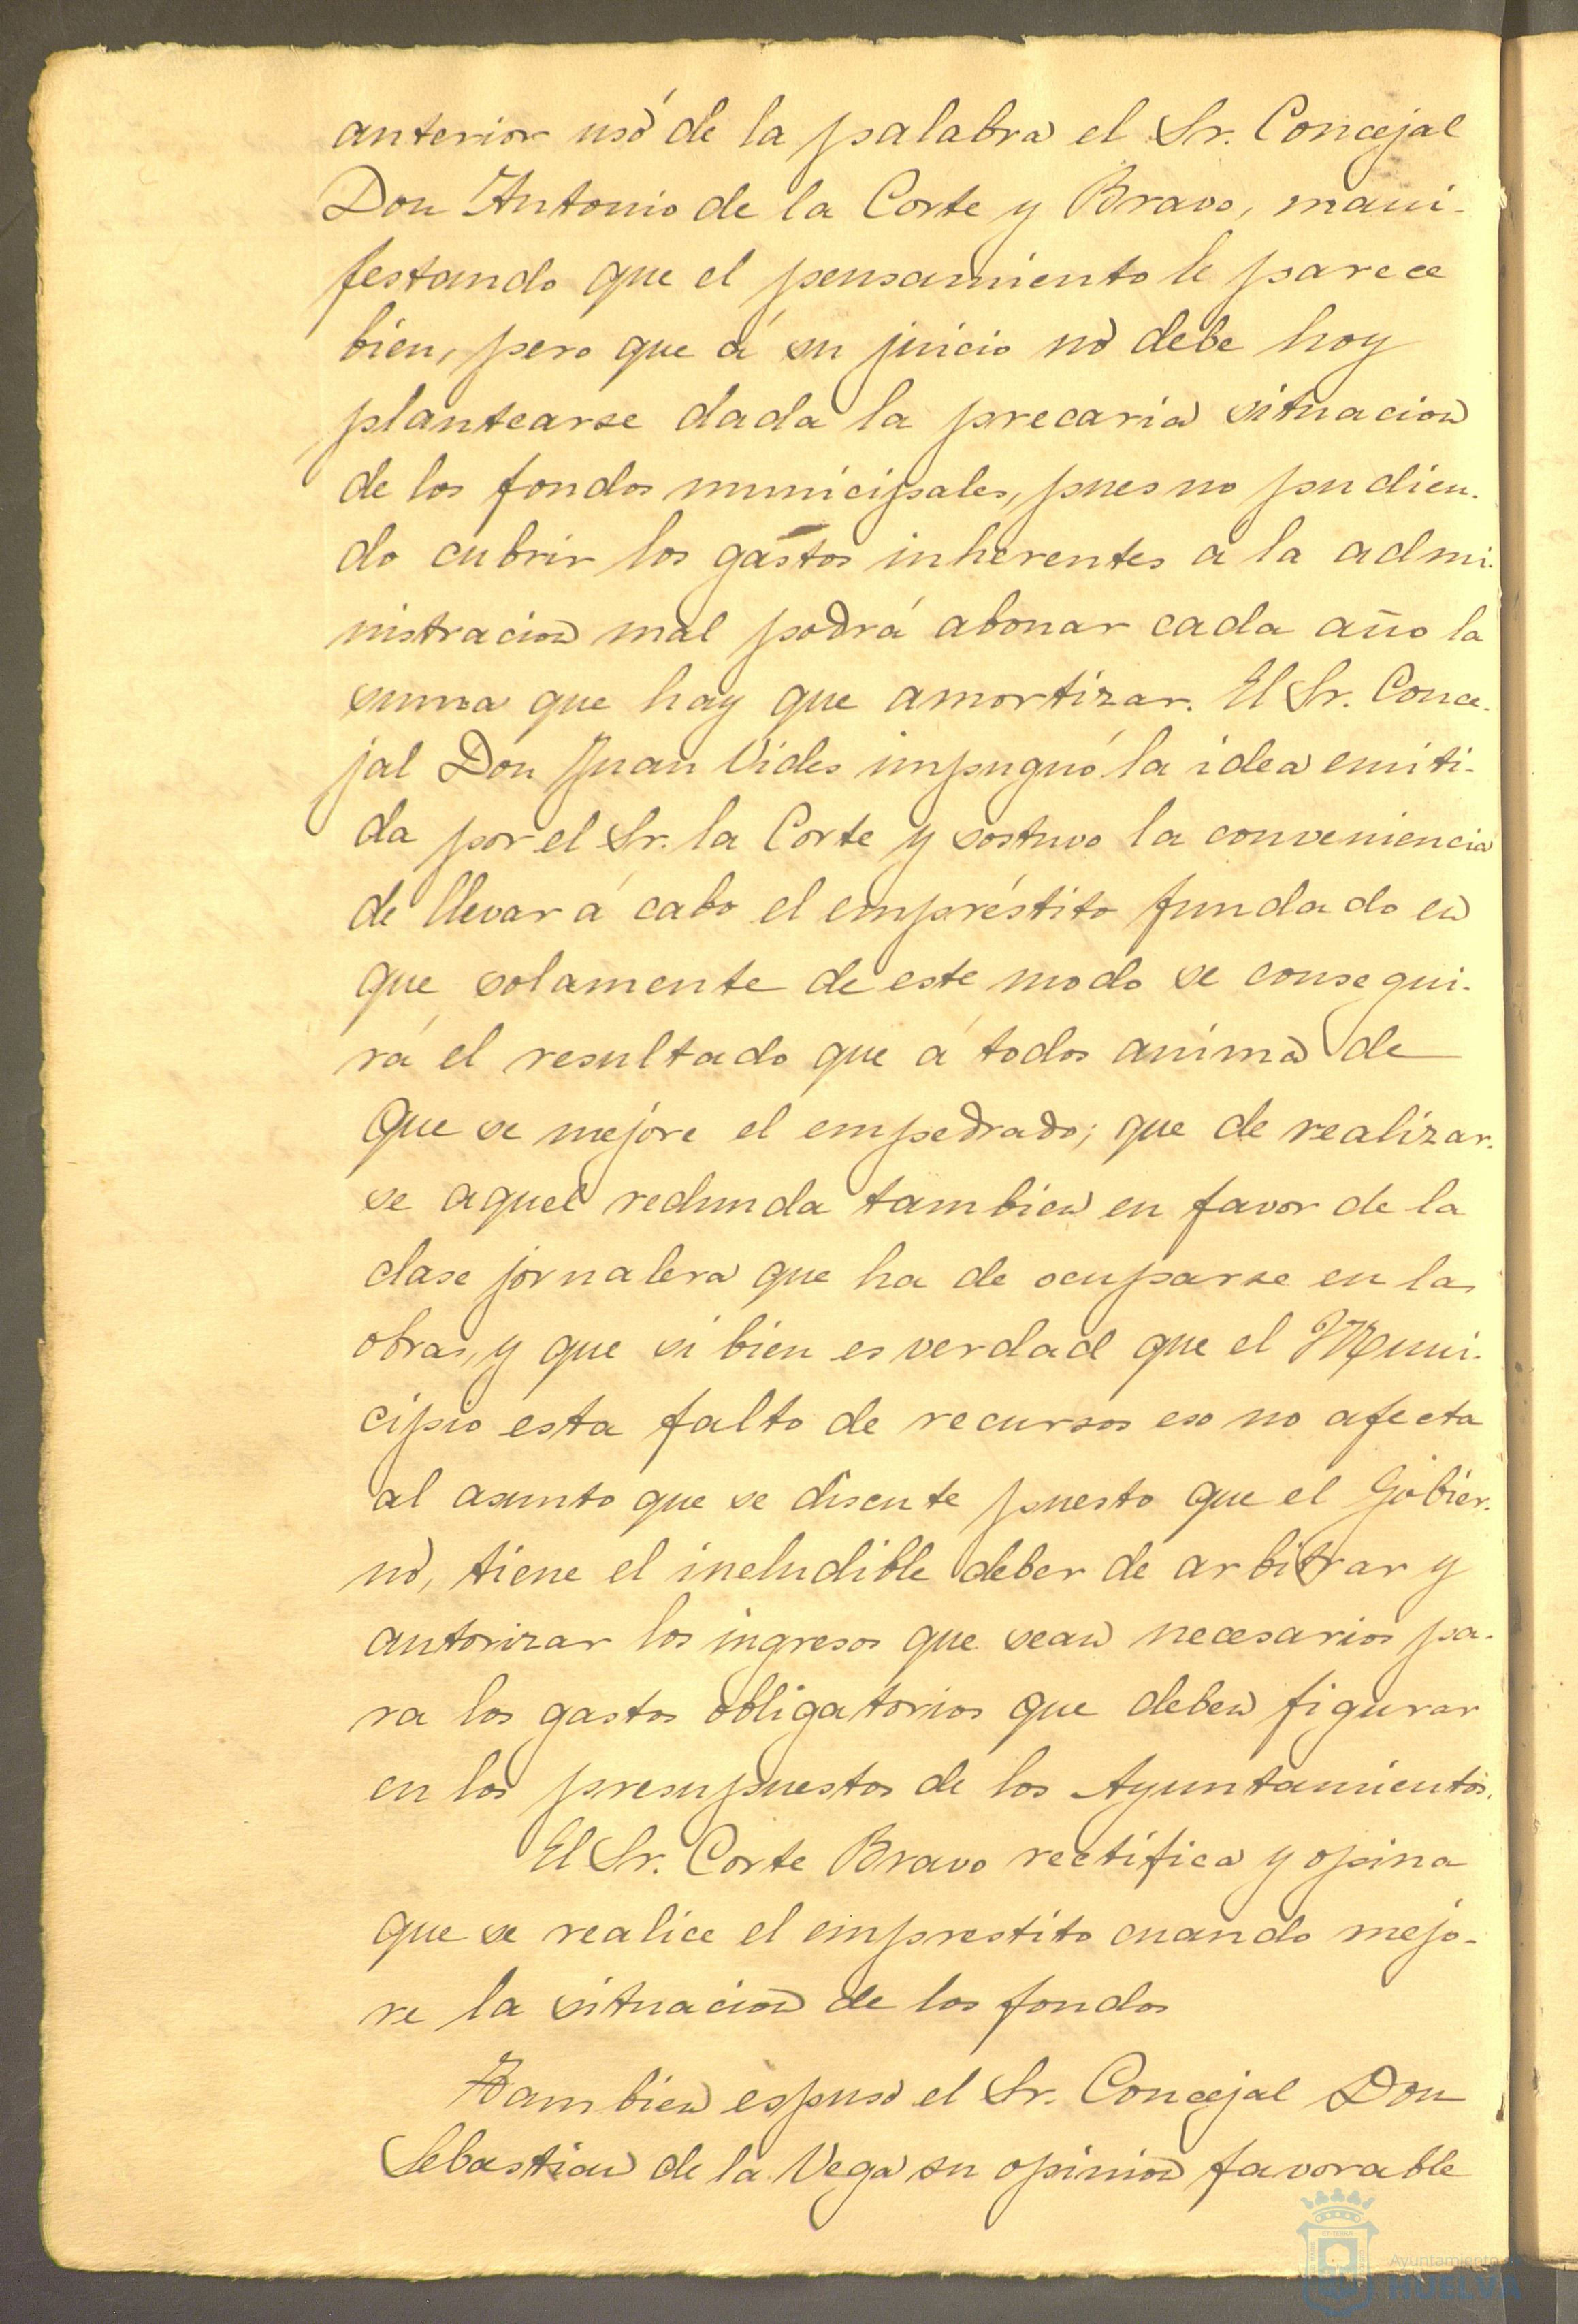 anterior usó de la palabra el Sr. Concejal
Don Antonio de la Corte y Bravo, mani-
festando que el pensamiento le parece
bien, pero que á su juicio no debe hoy
plantearse dada la precaria situacion
de los fondos municipales, pues no pudien-
do cubrir los gastos inherentes a la admi-
nistracion mal podrá abonar cada año la
suma que hay que amortizar. El Sr. Conce-
jal Don Juan Vides impugnó la idea emiti-
da por el Sr. la Corte y sostuvo la conveniencia
de llevar á cabo el empréstito fundado en
que solamente de este modo se consegui-
rá el resultado que á todos anima de
que se mejore el empedrado; que de realizar-
se aquel redunda tambien en favor de la
clase jornalera que ha de ocuparse en las
obras, y que si bien es verdad que el Muni-
cipio esta falto de recursos eso no afecta
al asunto que se discute puesto que el Gobier-
no, tiene el ineludible deber de arbitrar y
autorizar los ingresos que sean necesarios pa-
ra los gastos obligatorios que deben figurar
en los presupuestos de los Ayuntamientos.
El Sr. Corte Bravo rectifica y opina
que se realice el emprestito cuando mejo-
re la situacion de los fondos
Tambien espuso el Sr. Concejal Don
Sebastian de la Vega su opinion favorable
Ayuntamiento de
HUELVA